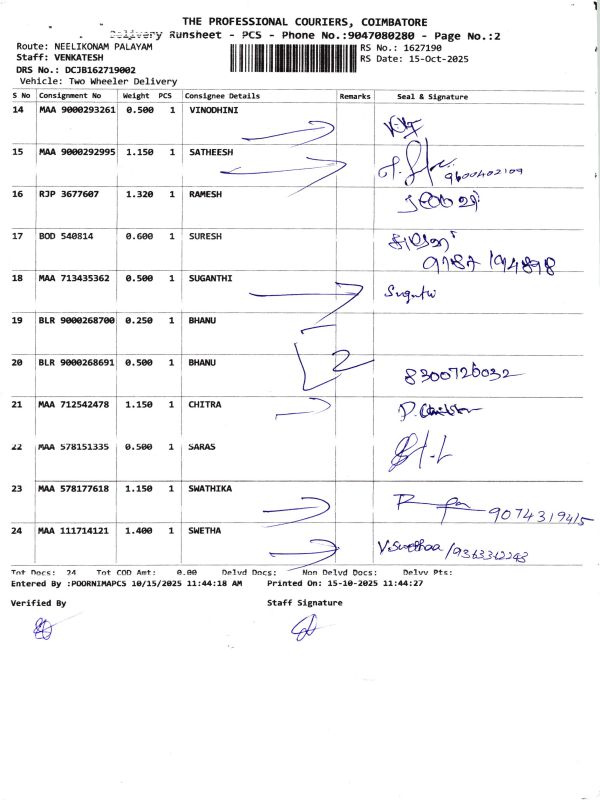 THE PROFESSIONAL COURIERS, COIMBATORE
Delivery Runsheet - PCS - Phone No.:9047080280 - Page No.:2
Route: NEELIKONAM PALAYAM
RS No.: 1627190
Staff: VENKATESH
RS Date: 15-Oct-2025
DRS No.: DCJB162719002
Vehicle: Two Wheeler Delivery
S No Consignment No Weight PCS Consignee Details Remarks Seal & Signature
14 MAA 9000293261 0.500 1 VINODHINI
15 MAA 9000292995 1.150 1 SATHEESH
9600402109
16 RJP 3677607 1.320 1 RAMESH
17 BOD 540814 0.600 1 SURESH
18 MAA 713435362 0.500 1 SUGANTHI
19 BLR 9000268700 0.250 1 BHANU
20 BLR 9000268691 0.500 1 BHANU
2
8300726032
21 MAA 712542478 1.150 1 CHITRA
22 MAA 578151335 0.500 1 SARAS
23 MAA 578177618 1.150 1 SWATHIKA
9074319415
24 MAA 111714121 1.400 1 SWETHA
V.Swethaa /9363312243
Tot Docs: 24 Tot COD Amt: 0.00 Delvd Docs: Non Delvd Docs: Delvy Pts:
Entered By :POORNIMAPCS 10/15/2025 11:44:18 AM Printed On: 15-10-2025 11:44:27
Verified By Staff Signature